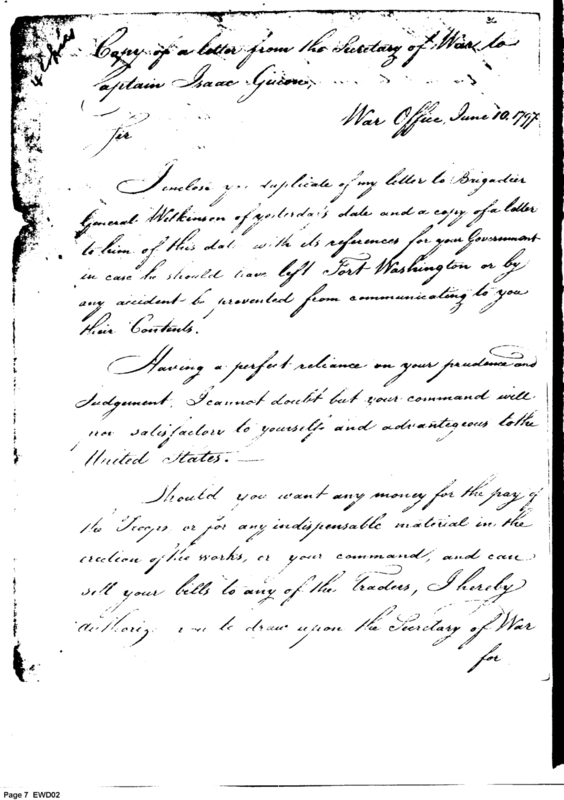 Copy of a letter from the Secretary of War to
Captain Isaac Guion,
War Office, June 10. 1797
Sir
I enclose you duplicate of my letter to Brigadier
General Wilkinson of yesterdais date and a copy of a letter
to him of this date with its references for your Government
in case he should have left Fort Washington or by
any accident be prevented from communicating to you
their Contents.
Having a perfect reliance on your prudence and
Judgement, I cannot doubt but your command will
satisfactory to yourself and advantegeous to the
United States. —
Should you want any money for the pay of
the Troops or for any indispensable material in the
erection of the works, or your command, and can
sell your bills to any of the Traders, I hereby
authorize you to draw upon the Secretary of War
for
Page 7 EWD02